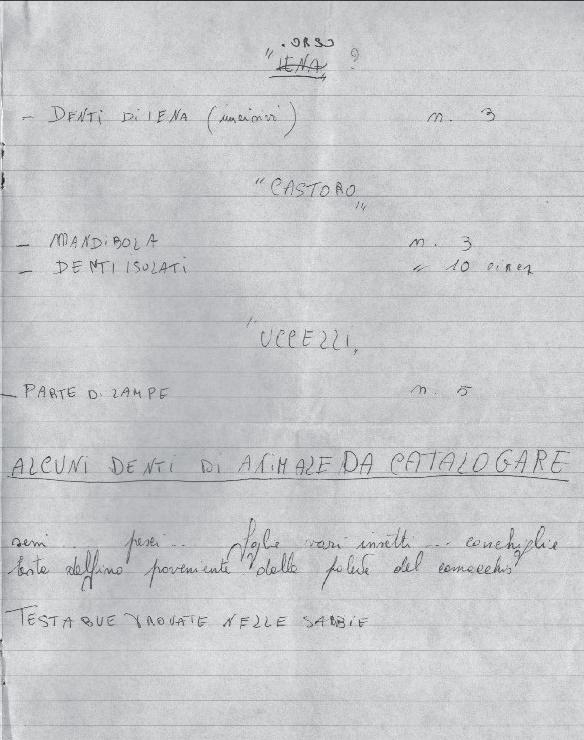 . ORSO
" IENA " ?
- DENTI DI IENA (incisivi) n. 3
"CASTORO"
- MANDIBOLA n. 3
- DENTI ISOLATI " 10 circa
"UCCELLI"
- PARTE DI ZAMPE n. 5
ALCUNI DENTI DI ANIMALE DA CATALOGARE
semi ... pesci ... foglie vari insetti ... conchiglie
testa delfino proveniente dalle del
TESTA BUE TROVATE NELLE SABBIE